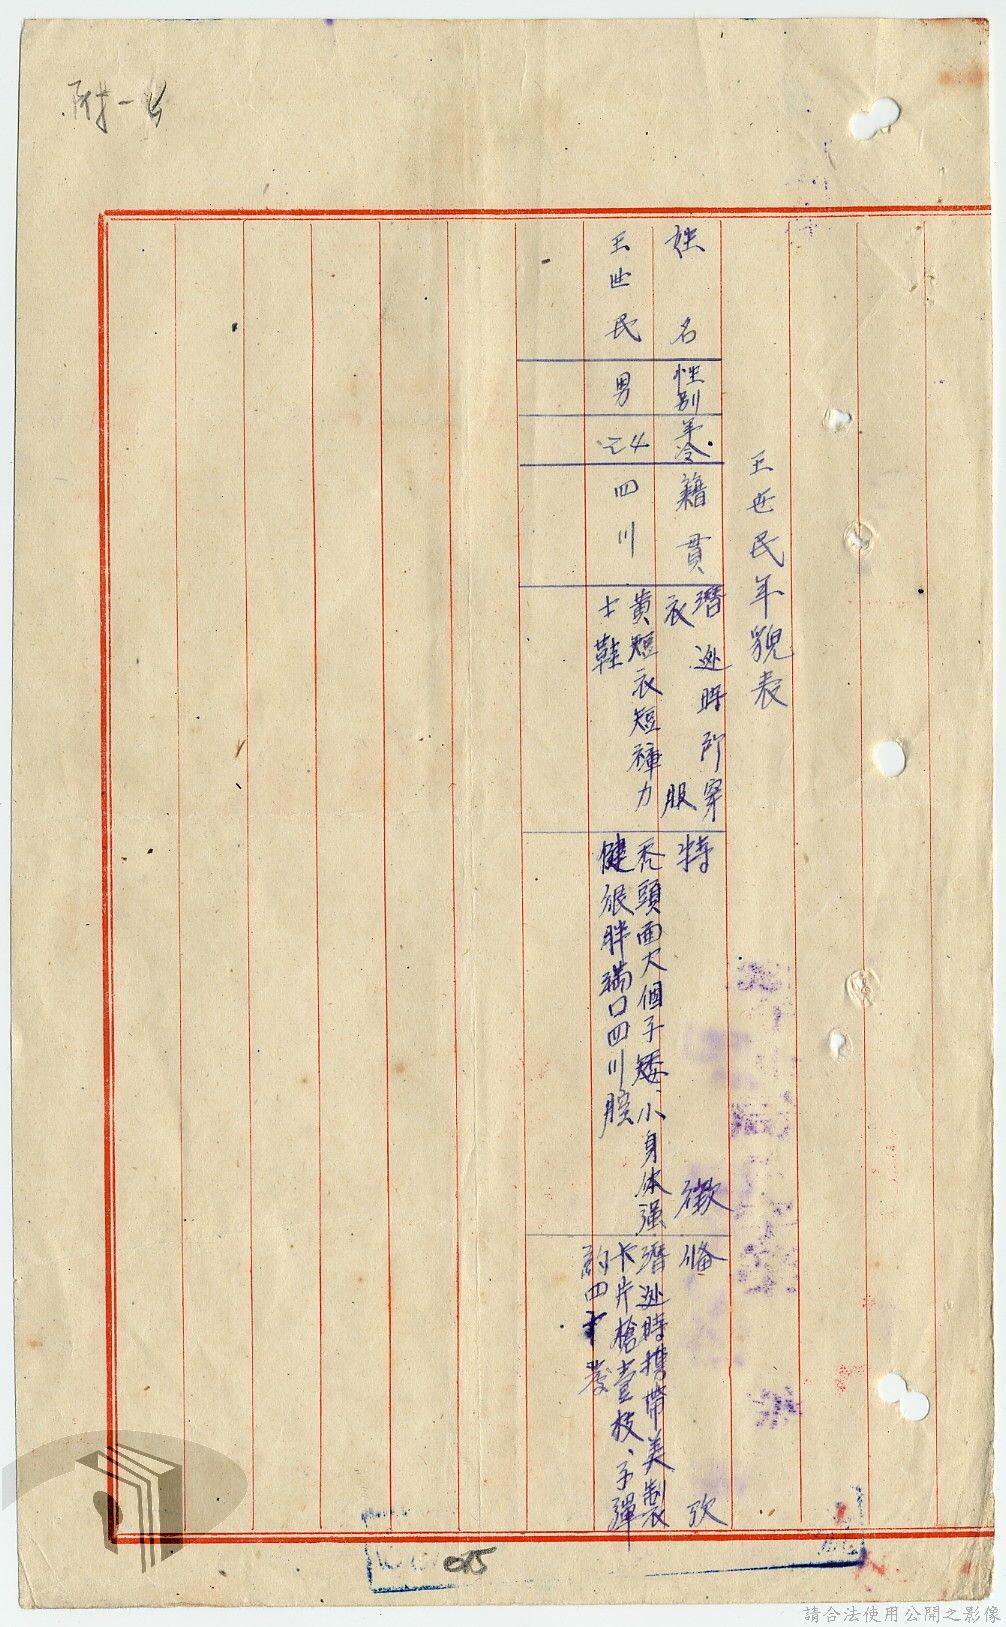 附一
王世民年貌表
姓名
性別
年令
籍貫
潛逃時所穿
衣服
特徵
俻攷
王世民
男
24
四川
黃短衣短褲力
士鞋
禿頭面大個子矮、小身体强
健很胖滿口四川腔
潛逃時携帶美製
卡片槍壹枝、子彈
約四十發
015
請合法使用公開之影像